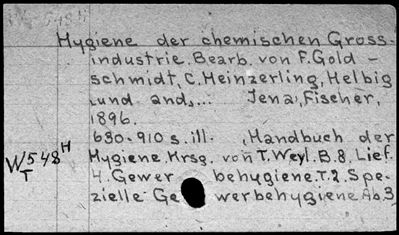 W 548 H
Hygiene der chemischen Gross-
industrie. Bearb. von F. Gold-
schmidt, C. Heinzerling, Helbig
und and,... Jena, Fischer,
1896.
630-910 s. ill. (Handbuch der
W548 H
T
Hygiene. Hrsg. von T. Weyl. B.8, Lief.
4. Gewerbehygiene. T.2. Spe-
zielle Gewerbehygiene Ab.3)